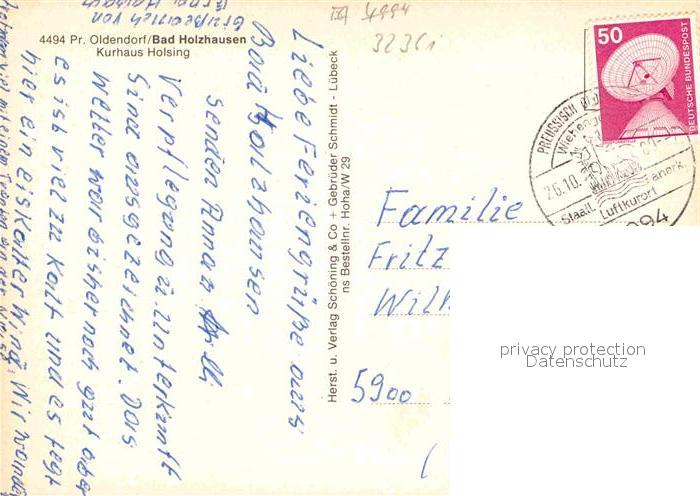 4494 Pr. Oldendorf/Bad Holzhausen
Kurhaus Holsing
4994
3236i
Liebe Feriengrüße aus
Bad Holzhausen
senden Anna
Verpflegung u. Unterkunft
sind ausgezeichnet. Das
Wetter war bisher noch gut aber
es ist viel zu kalt und es fegt
hier ein eiskalter Wind. Wir
Herst. u. Verlag Schöning & Co + Gebrüder Schmidt - Lübeck
ns Bestellnr. Hoha/W 29
50
DEUTSCHE BUNDESPOST
PREUSSISCH
26.10.
Staatl. anerk.
Luftkurort
Familie
Fritz
Wilh
5900
privacy protection
Datenschutz